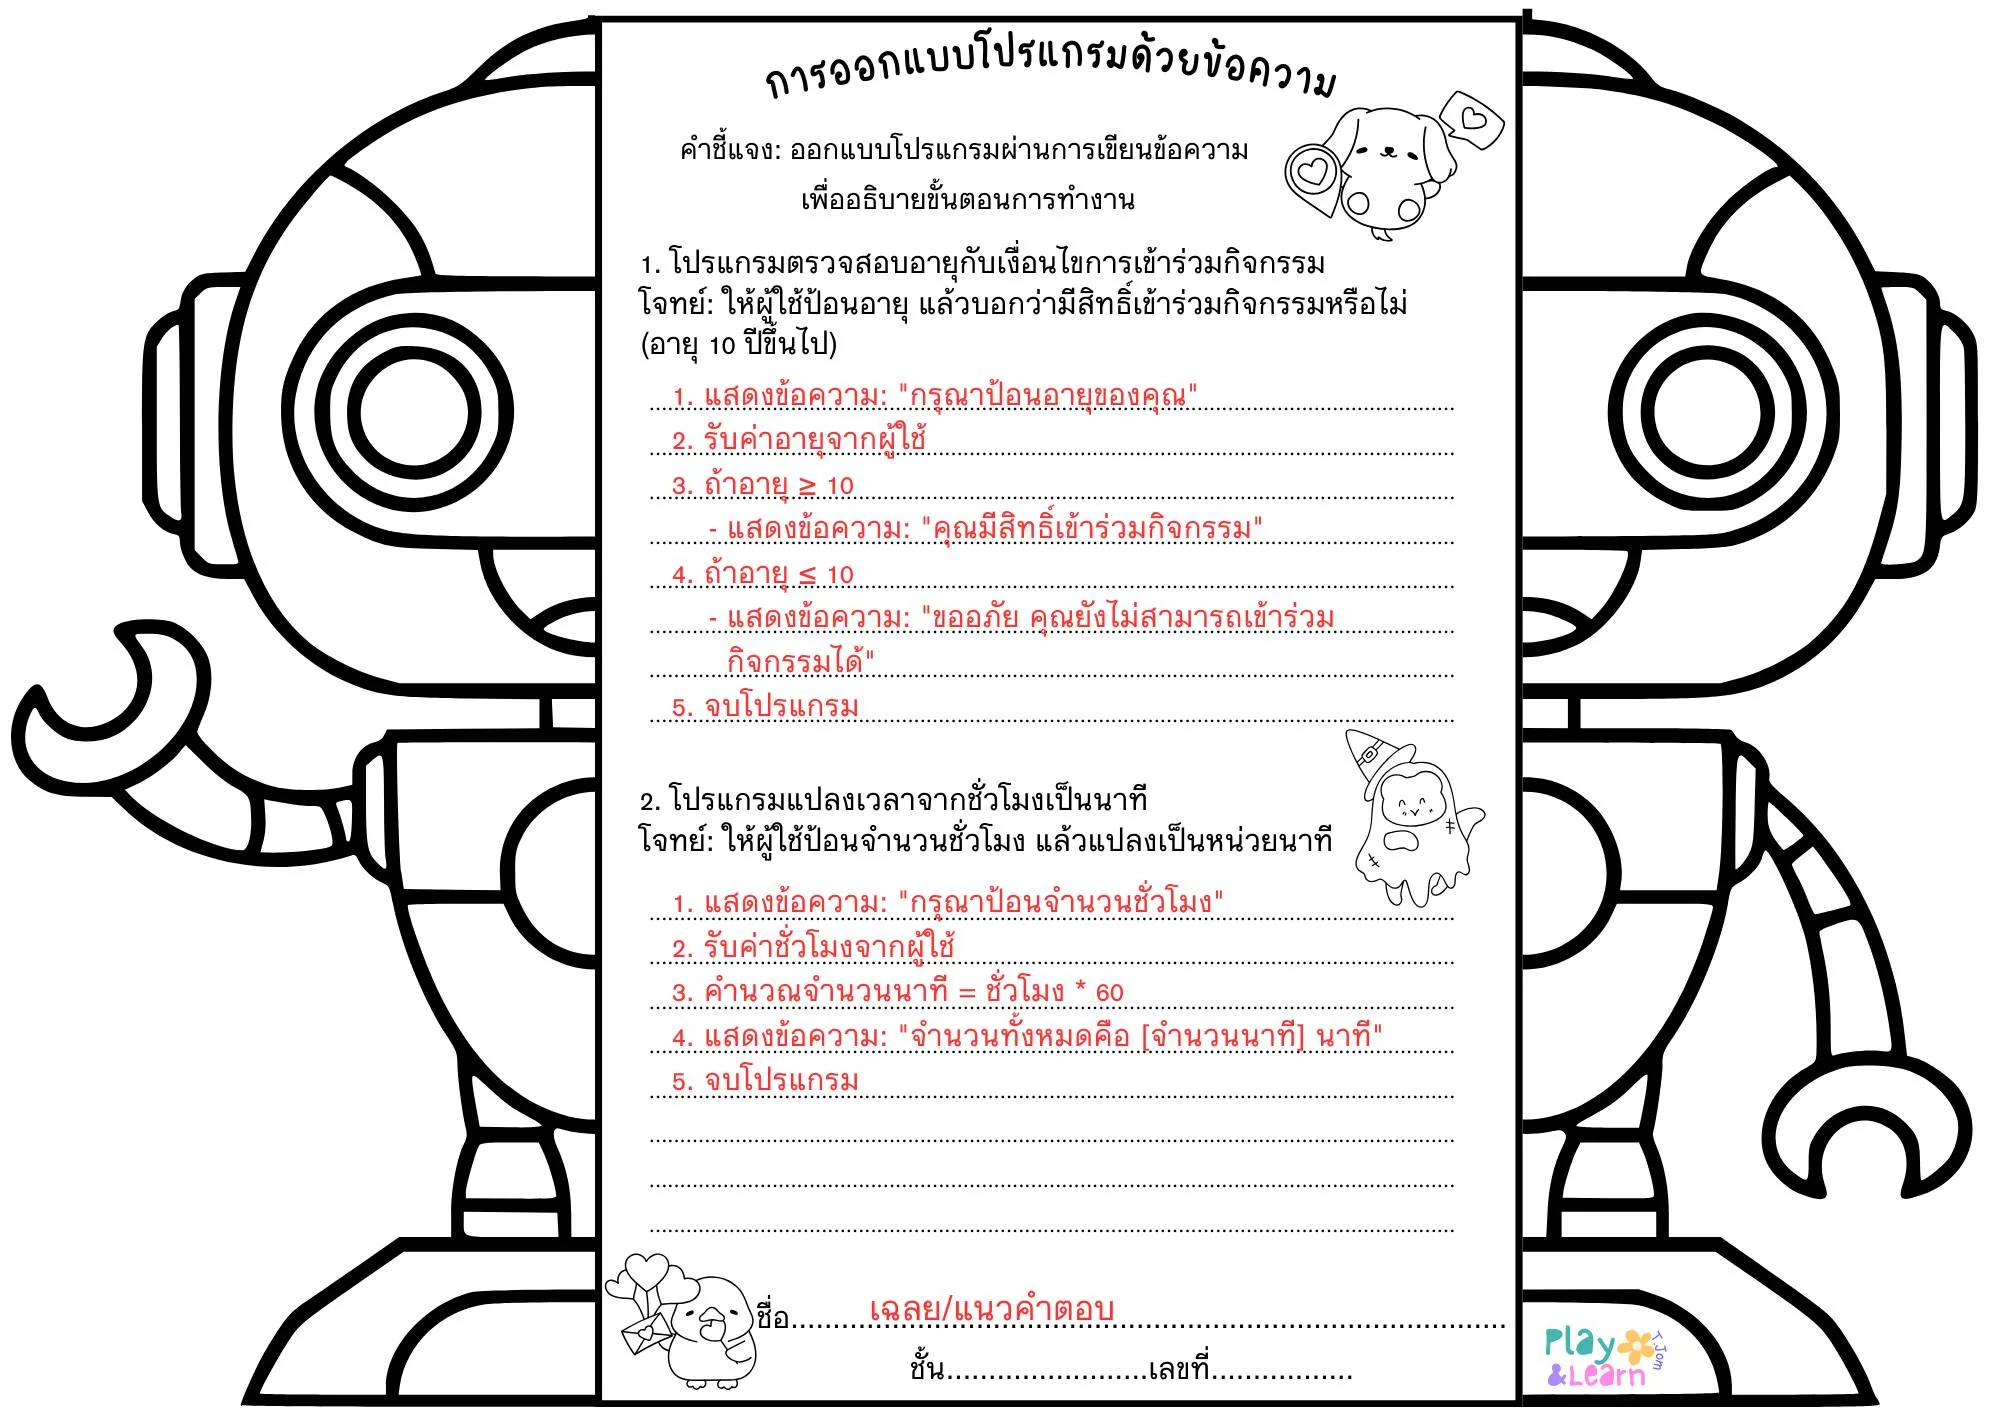 การออกแบบโปรแกรมด้วยข้อความ
คำชี้แจง: ออกแบบโปรแกรมผ่านการเขียนข้อความ
เพื่ออธิบายขั้นตอนการทำงาน
1. โปรแกรมตรวจสอบอายุกับเงื่อนไขการเข้าร่วมกิจกรรม
โจทย์: ให้ผู้ใช้ป้อนอายุ แล้วบอกว่ามีสิทธิ์เข้าร่วมกิจกรรมหรือไม่
(อายุ 10 ปีขึ้นไป)
1. แสดงข้อความ: "กรุณาป้อนอายุของคุณ"
2. รับค่าอายุจากผู้ใช้
3. ถ้าอายุ ≥ 10
- แสดงข้อความ: "คุณมีสิทธิ์เข้าร่วมกิจกรรม"
4. ถ้าอายุ ≤ 10
- แสดงข้อความ: "ขออภัย คุณยังไม่สามารถเข้าร่วม
กิจกรรมได้"
5. จบโปรแกรม
2. โปรแกรมแปลงเวลาจากชั่วโมงเป็นนาที
โจทย์: ให้ผู้ใช้ป้อนจำนวนชั่วโมง แล้วแปลงเป็นหน่วยนาที
1. แสดงข้อความ: "กรุณาป้อนจำนวนชั่วโมง"
2. รับค่าชั่วโมงจากผู้ใช้
3. คำนวณจำนวนนาที = ชั่วโมง * 60
4. แสดงข้อความ: "จำนวนทั้งหมดคือ [จำนวนนาที] นาที"
5. จบโปรแกรม
ชื่อ.........เฉลย/แนวคำตอบ..............................................
ชั้น........................เลขที่.................
Play
&Learn
T.Jom